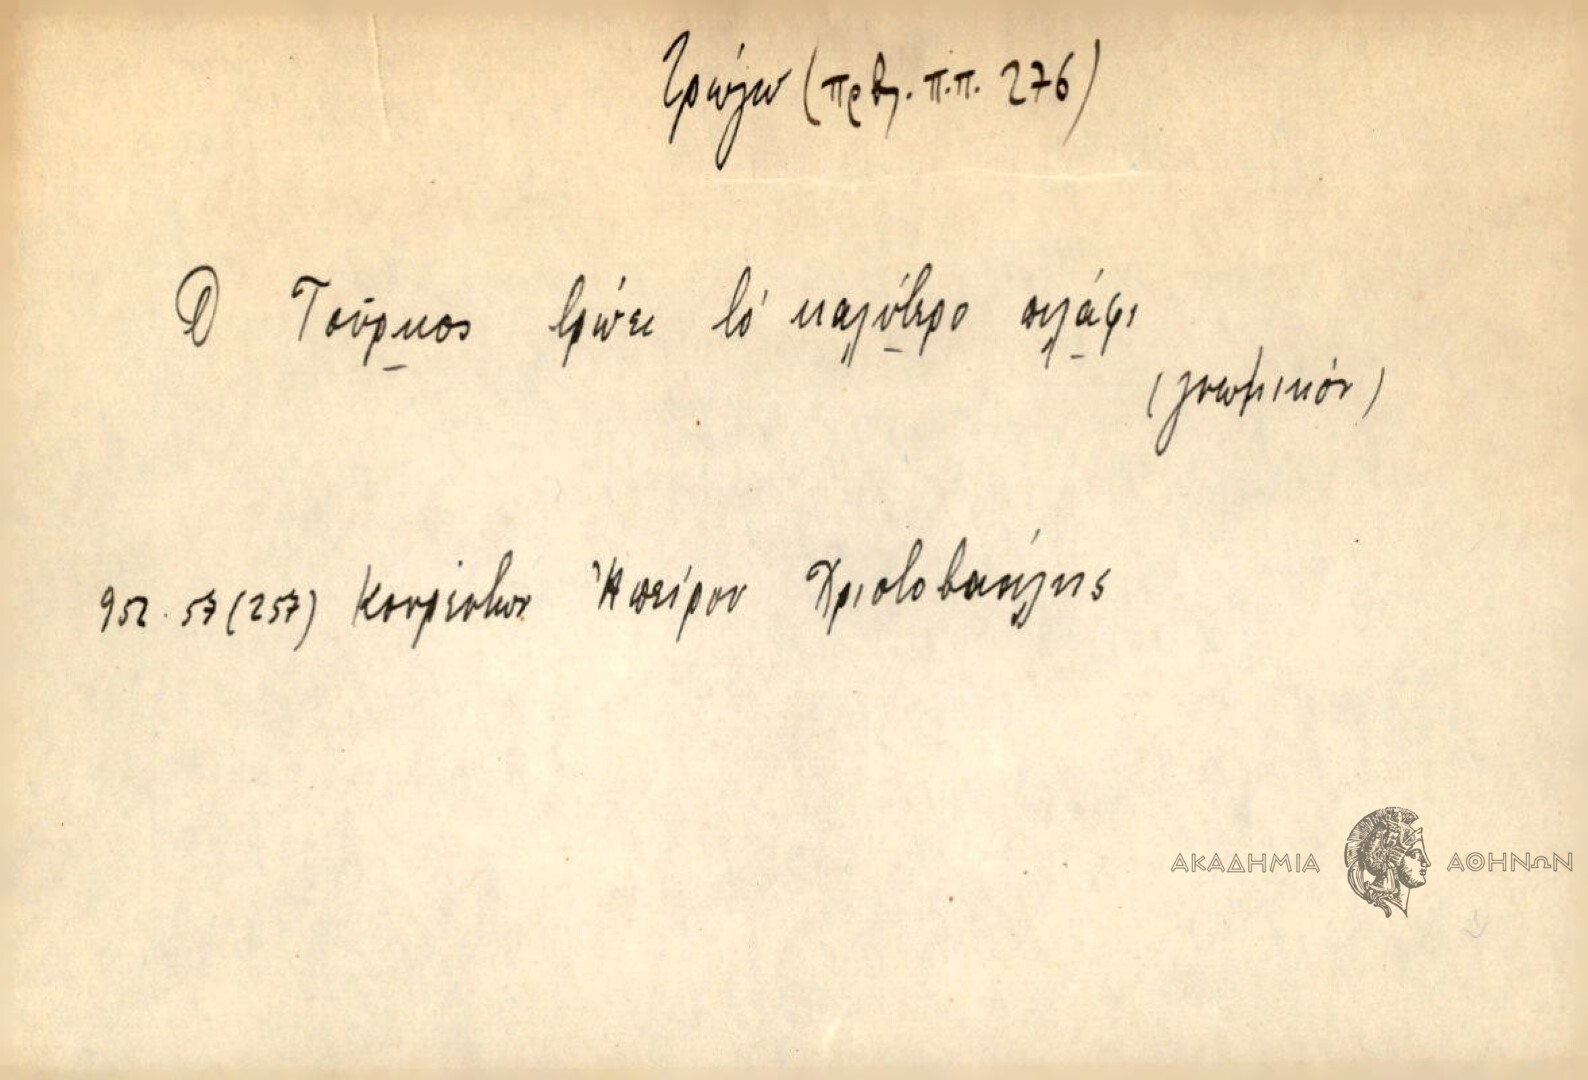 Τρώγω (πρβλ. π.π. 276)
Ὁ Τοῦρκος τρώει τό καλύτερο πιλάφι
(γνωμικόν)
952. 57 (257) Κουρέντων Ἠπείρου Χριστοβασίλης
ΑΚΑΔΗΜΙΑ ΑΘΗΝΩΝ